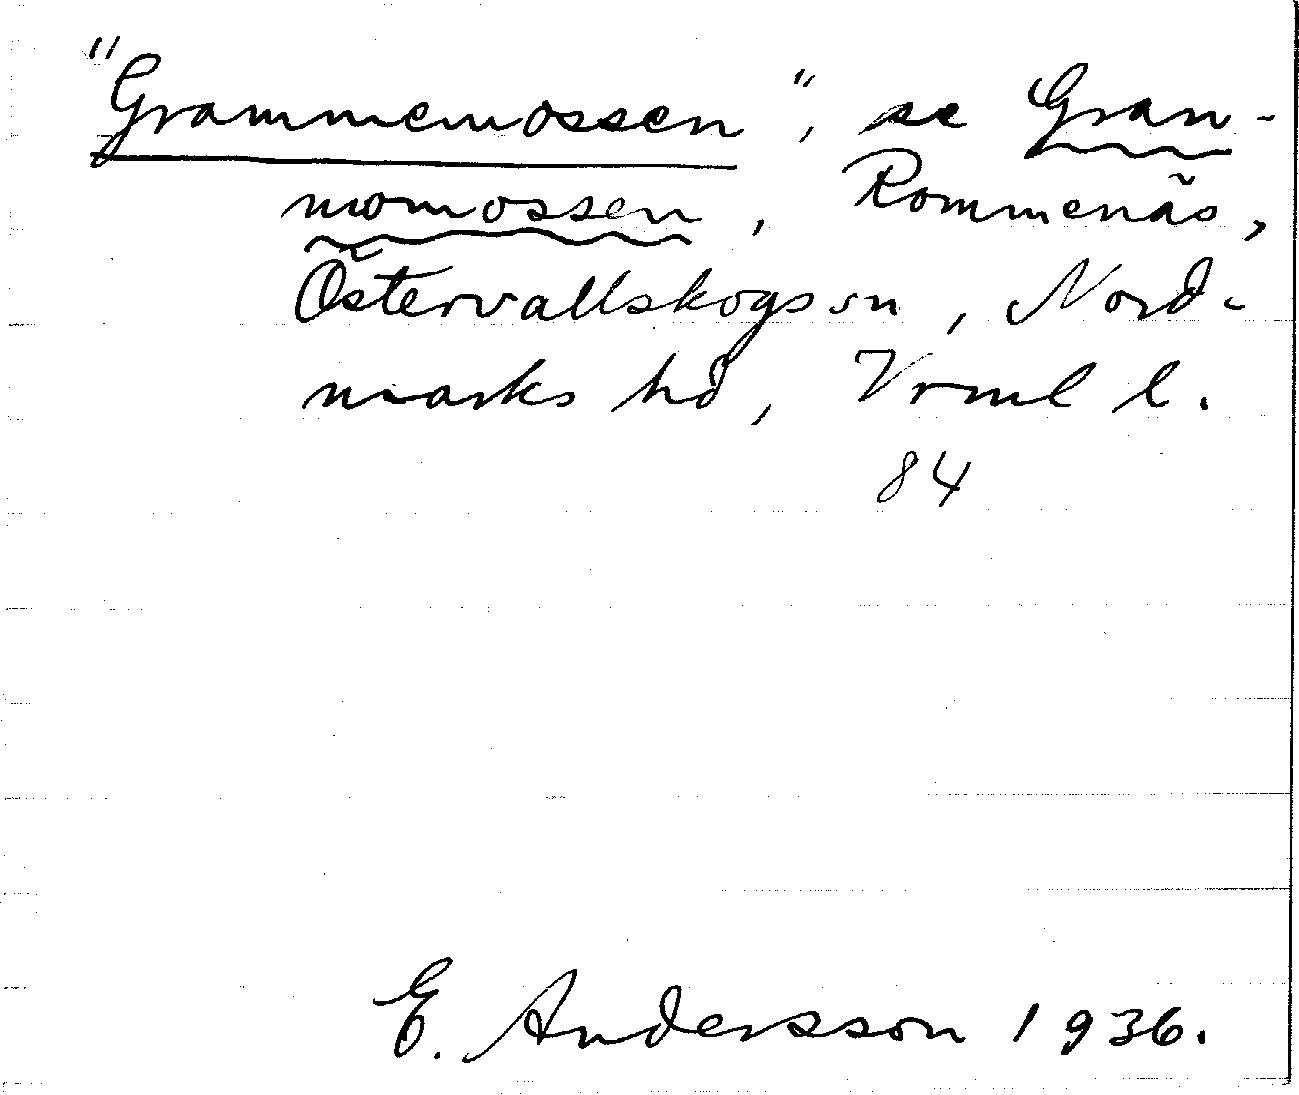 "Grammemossen", se Gran-
momossen, Rommenäs,
Östervallskogs sn, Nord-
marks hd, Vrml l.
84
E. Andersson 1936.